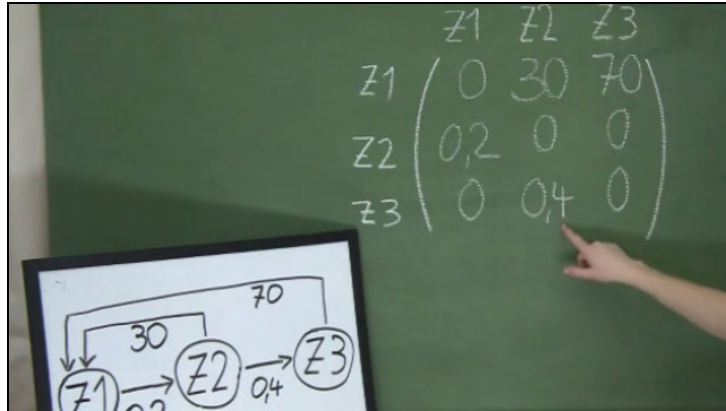 Z1 Z2 Z3
Z1 0 30 70
Z2 0,2 0 0
Z3 0 0,4 0
70
30
Z1 Z2 Z3
0,2 0,4